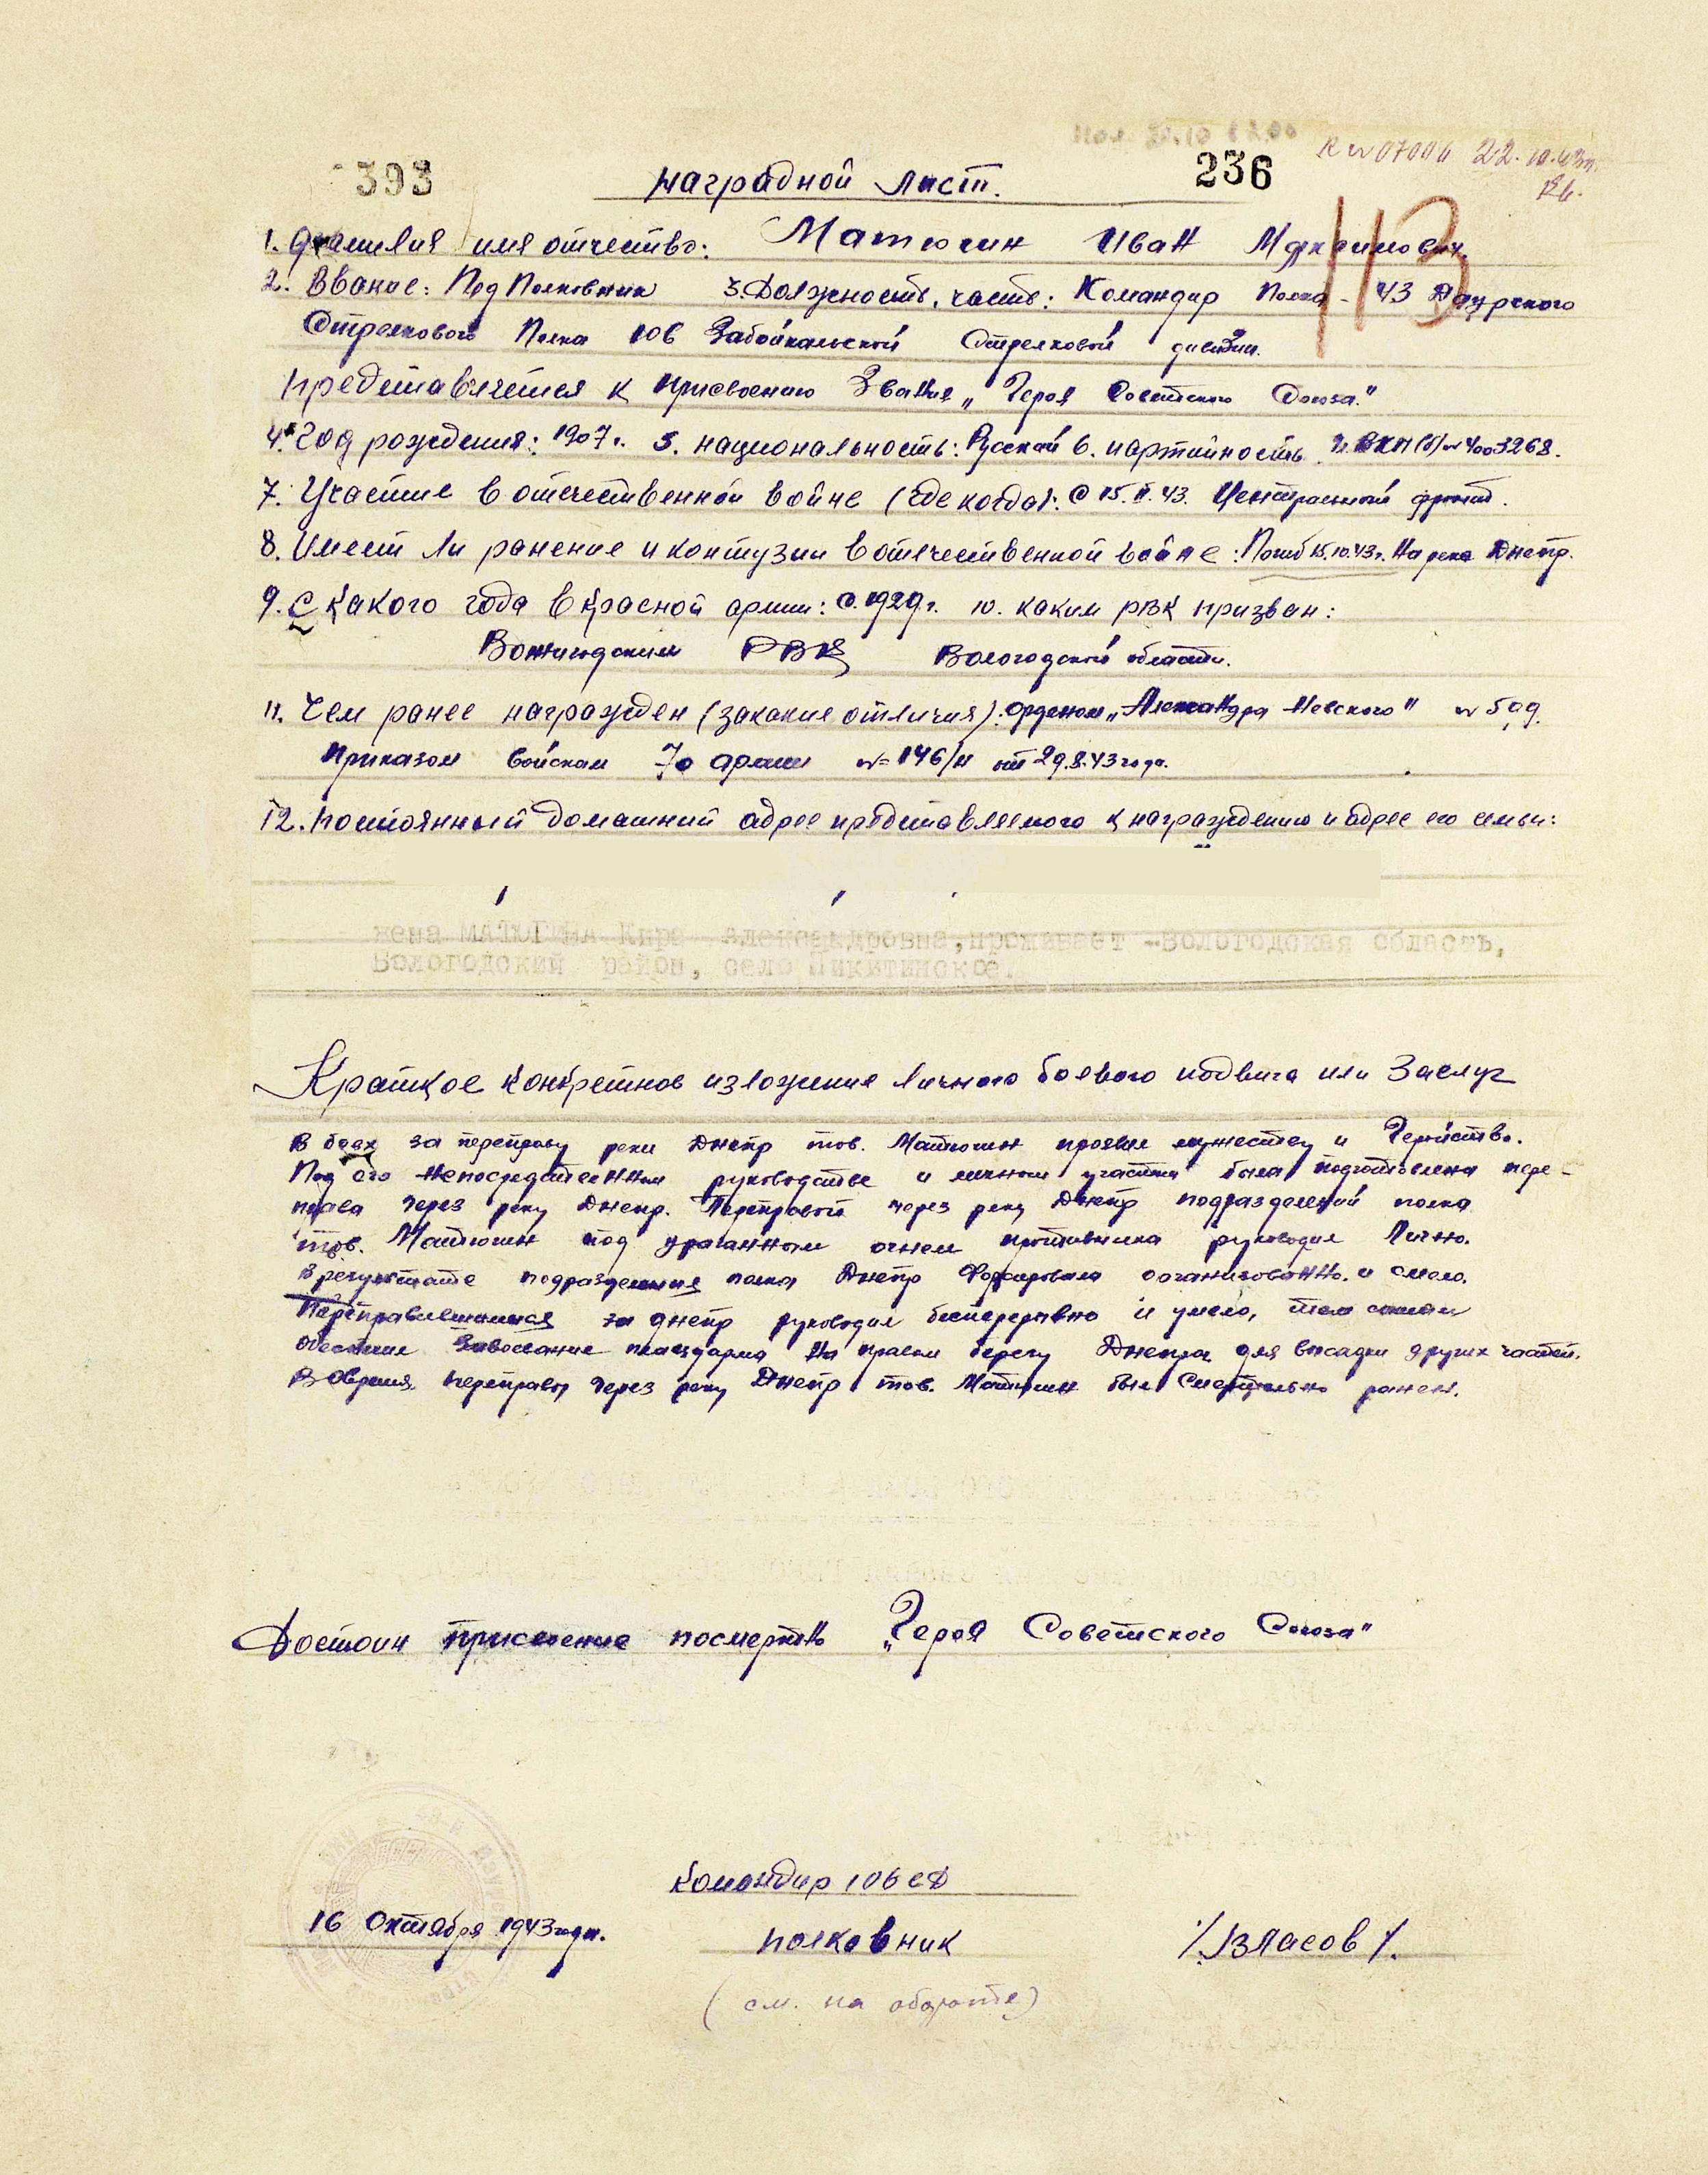 393
236
22.10.43г.
113
Наградной лист.
1. Фамилия имя отчество: Матюгин Иван Максимович.
2. Звание: Под Полковник 3. Должность, часть: Командир Полка - 43 Даурского
Стрелкового Полка 106 Забайкальской Стрелковой дивизии.
Представляется к присвоению Звания „Героя Советского Союза."
4. Год рождения: 1907 г. 5. национальность: Русский 6. партийность ВКП(б) № 4003268.
7. Участие в отечественной войне (где когда): С 15.II.43. Центральный фронт.
8. Имеет ли ранение и контузии в отечественной войне: Погиб 15.10.43 г. На реке Днепр.
9. С какого года в Красной армии: с 1929 г. 10. каким РВК призван:
Вожегодским РВК Вологодской области.
11. Чем ранее награжден (за какие отличия): орденом „Александра Невского"
Приказом войскам 70 армии № 146/н от 29.8.43 года.
12. Постоянный домашний адрес представляемого к награждению и адрес его семьи:
жена МАТЮГИНА Кира Александровна, проживает - Вологодская область,
Вологодский район, село Никитинское.
Краткое конкретное изложение личного боевого подвига или Заслуг
В боях за переправу реки Днепр тов. Матюгин проявил мужество и Геройство.
Под его непосредственным руководством и личном участии была подготовлена пере-
права через реку Днепр. Переправой через реку Днепр подразделений полка
тов. Матюгин под ураганным огнем противника руководил Лично.
В результате подразделения полка Днепр Форсировали организованно и смело.
Переправившимися за днепр руководил беспрерывно и умело, тем самым
обеспечил Завоевание плацдарма на правом берегу Днепра для высадки других частей.
Во время переправы через реку Днепр тов. Матюгин был Смертельно ранен.
Достоин присвоение посмертно „Героя Советского Союза"
Командир 106 СД
16 Октября 1943 года. полковник /Власов/.
(см. на обороте)